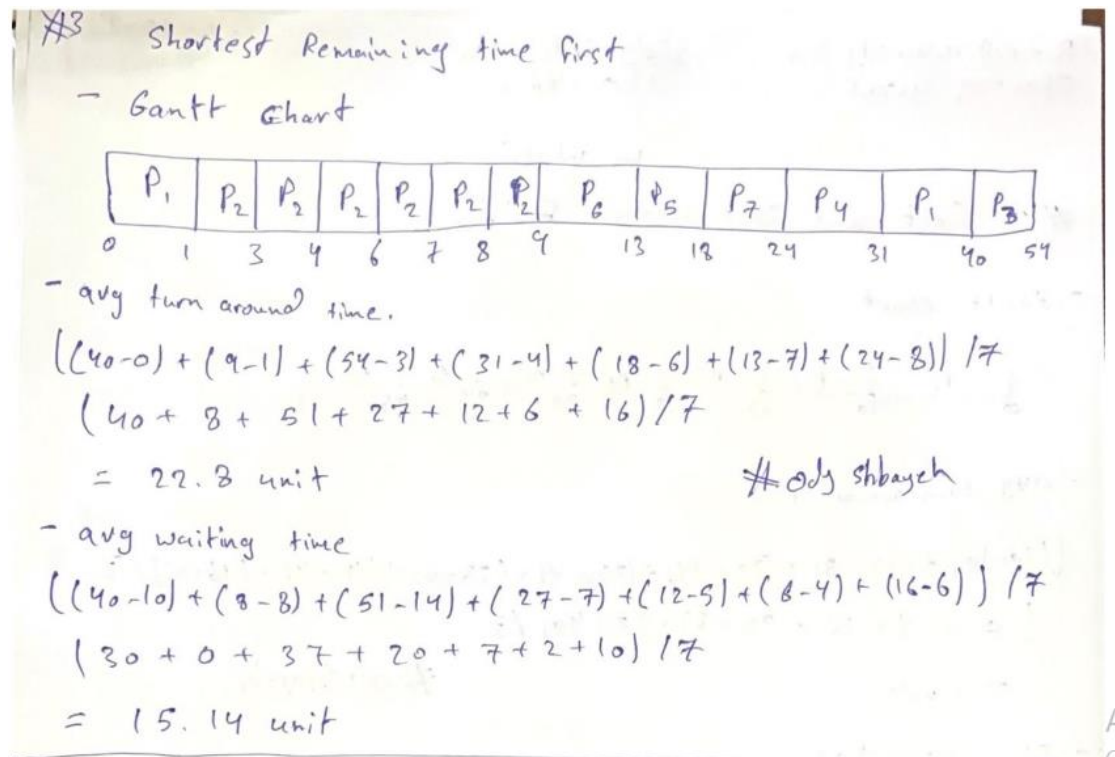 #3 Shortest Remaining time first
- Gantt Chart
P1 P2 P2 P2 P2 P2 P2 P6 P5 P7 P4 P1 P3
0 1 3 4 6 7 8 9 13 18 24 31 40 54
- avg turn around time.
((40-0) + (9-1) + (54-3) + (31-4) + (18-6) + (13-7) + (24-8)) /7
(40 + 8 + 51 + 27 + 12 + 6 + 16) /7
= 22.8 unit
# ody shbayeh
- avg waiting time
((40-10) + (8-8) + (51-14) + (27-7) + (12-5) + (6-4) + (16-6)) /7
(30 + 0 + 37 + 20 + 7 + 2 + 10) /7
= 15.14 unit